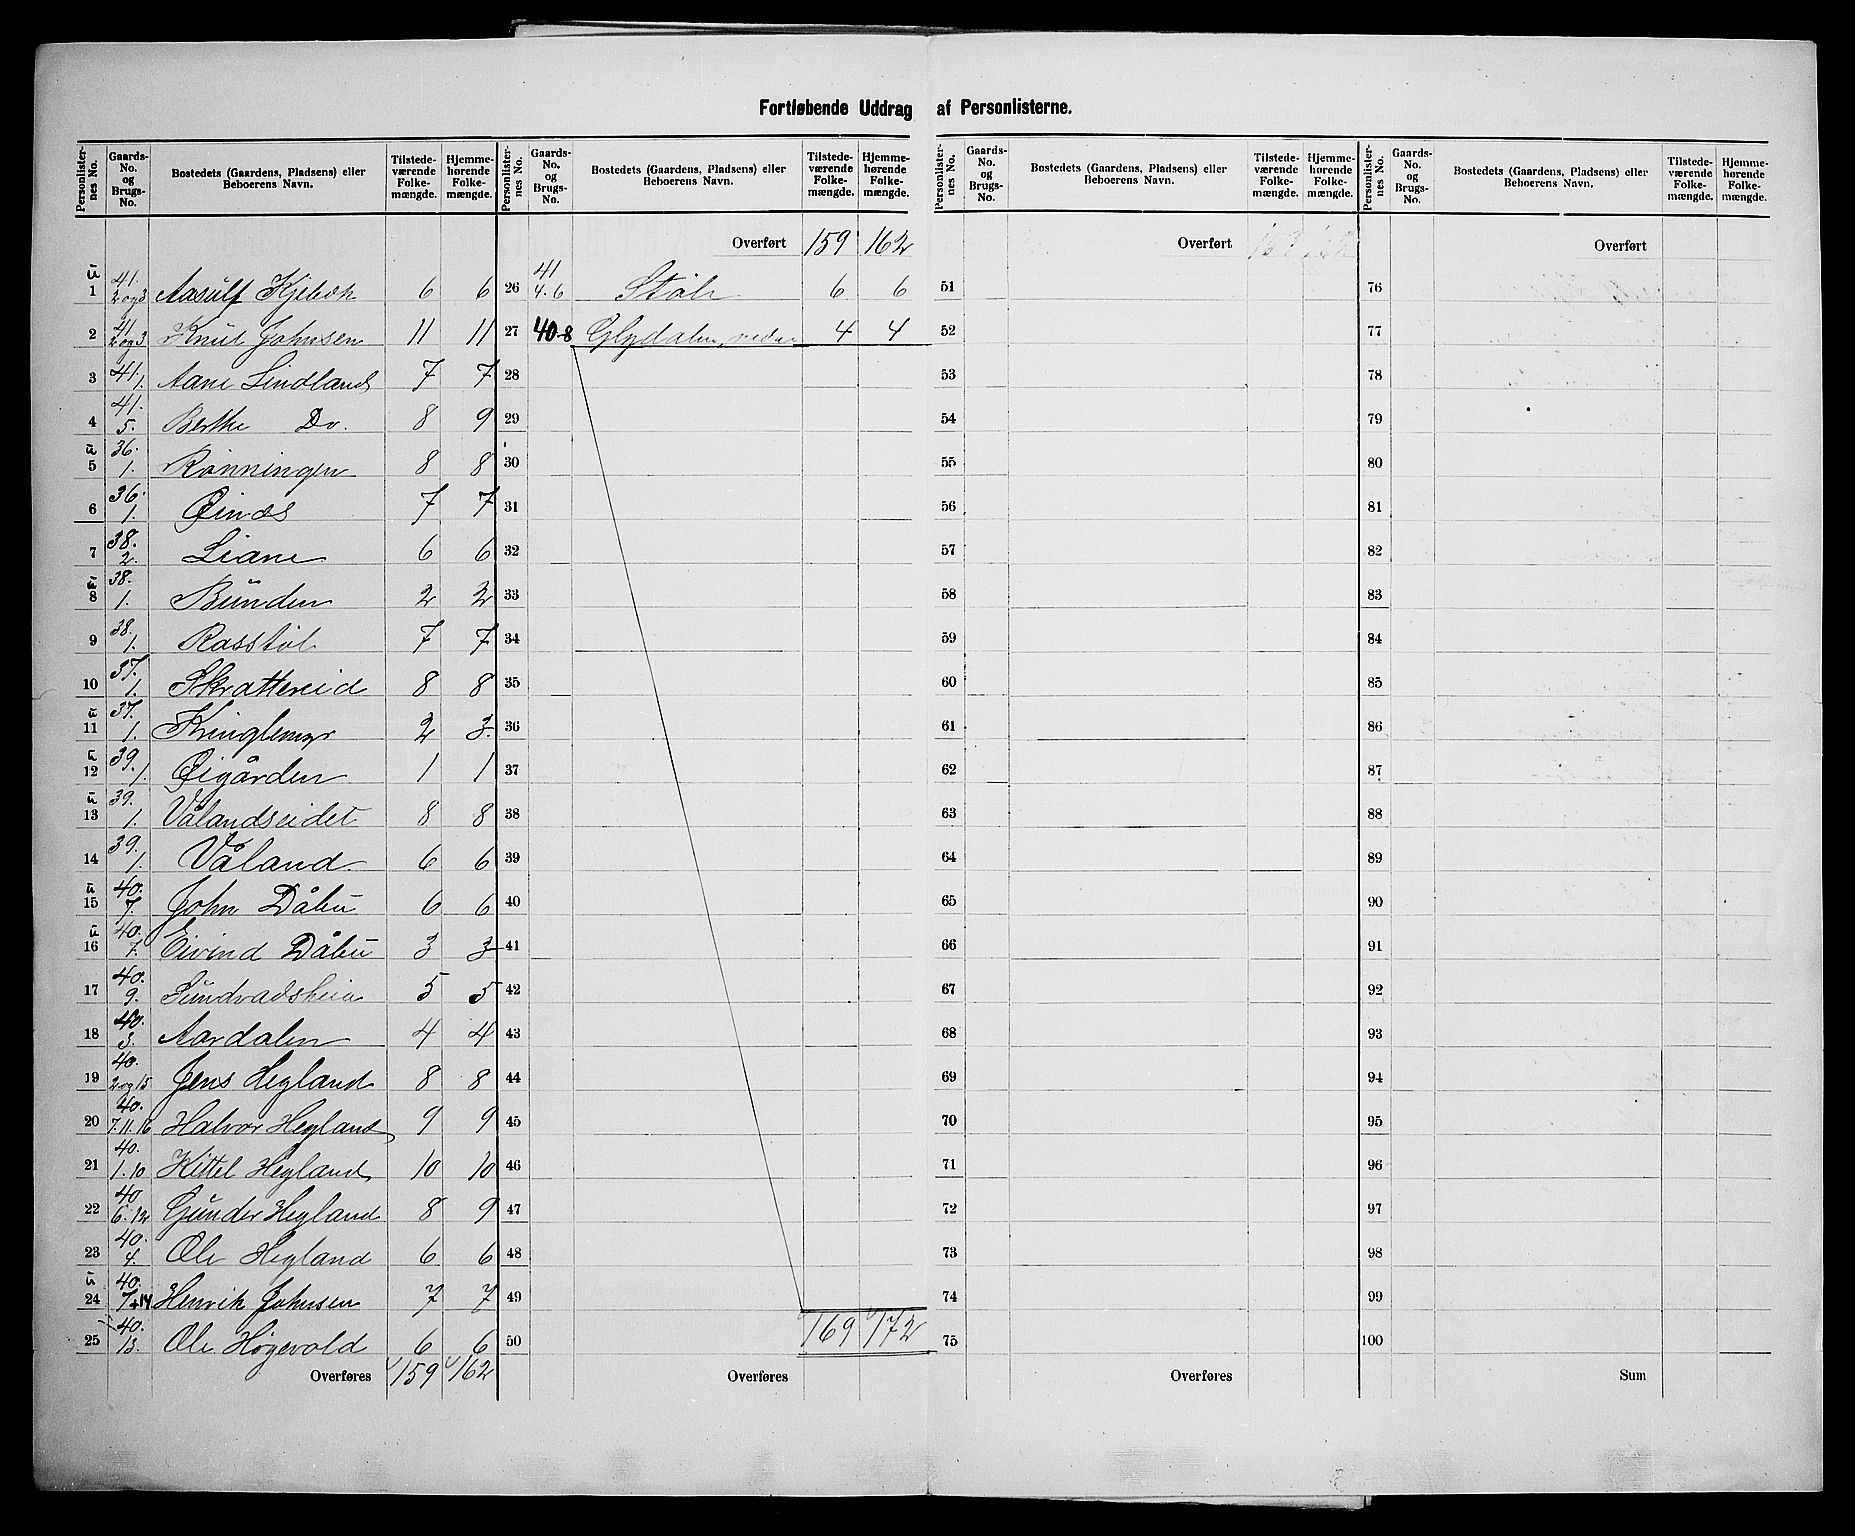 Fortløbende Uddrag af Personlisterne.
Personlisternes No. | Gaards-No. og Brugs-No. | Bostedets (Gaardens, Pladsens) eller Beboerens Navn. | Tilstedeværende Folkemængde. | Hjemmehørende Folkemængde.
ŭ 1 | 41. 2 og 3 | Aasulf Kjebek | 6 | 6
2 | 41. 2 og 3 | Knut Johnsen | 11 | 11
3 | 41. 1. | Aane Lindland | 7 | 7
4 | 41. 5. | Berthe Do. | 8 | 9
ŭ 5 | 36. 1. | Rønningen | 8 | 8
6 | 36. 1. | Øinæs | 7 | 7
7 | 38. 2. | Liane | 6 | 6
8 | 38. 1. | Bunden | 2 | 2
9 | 38. 1. | Rasstøl | 7 | 7
10 | 37. 1. | Skrattereid | 8 | 8
ŭ 11 | 37. 1. | Kringlemyr | 2 | 3
12 | 39. 1. | Øigården | 1 | 1
ŭ 13 | 39. 1. | Vålandseidet | 8 | 8
14 | 39. 1. | Våland | 6 | 6
ŭ 15 | 40. 7. | John Dåbu | 6 | 6
ŭ 16 | 40. 7. | Eivind Dåbu | 3 | 3
17 | 40. 9. | Sundvadsheia | 5 | 5
18 | 40. 3. | Aardalen | 4 | 4
19 | 40. 2 og 15 | Jens Hegland | 8 | 8
20 | 40. 7. 11. 16 | Halvor Hegland | 9 | 9
21 | 40. 1. 10 | Kittel Hegland | 10 | 10
22 | 40 6. 12 | Gunder Hegland | 8 | 9
23 | 40. 4. | Ole Hegland | 6 | 6
ŭ 24 | 40. 7+14 | Henrik Johnsen | 7 | 7
25 | 40. 13. | Ole Høgevold | 6 | 6
Overføres | 159 | 162
Personlisternes No. | Gaards-No. og Brugs-No. | Bostedets (Gaardens, Pladsens) eller Beboerens Navn. | Tilstedeværende Folkemængde. | Hjemmehørende Folkemængde.
Overført | 159 | 162
26 | 41 4. 6 | Støle | 6 | 6
27 | 40-8 | Glydalen, nedre | 4 | 4
28
29
30
31
32
33
34
35
36
37
38
39
40
41
42
43
44
45
46
47
48
49
50 | 169 | 172
Overføres
Personlisternes No. | Gaards-No. og Brugs-No. | Bostedets (Gaardens, Pladsens) eller Beboerens Navn. | Tilstedeværende Folkemængde. | Hjemmehørende Folkemængde.
Overført
51
52
53
54
55
56
57
58
59
60
61
62
63
64
65
66
67
68
69
70
71
72
73
74
75
Overføres
Personlisternes No. | Gaards-No. og Brugs-No. | Bostedets (Gaardens, Pladsens) eller Beboerens Navn. | Tilstedeværende Folkemængde. | Hjemmehørende Folkemængde.
Overført
76
77
78
79
80
81
82
83
84
85
86
87
88
89
90
91
92
93
94
95
96
97
98
99
100
Sum